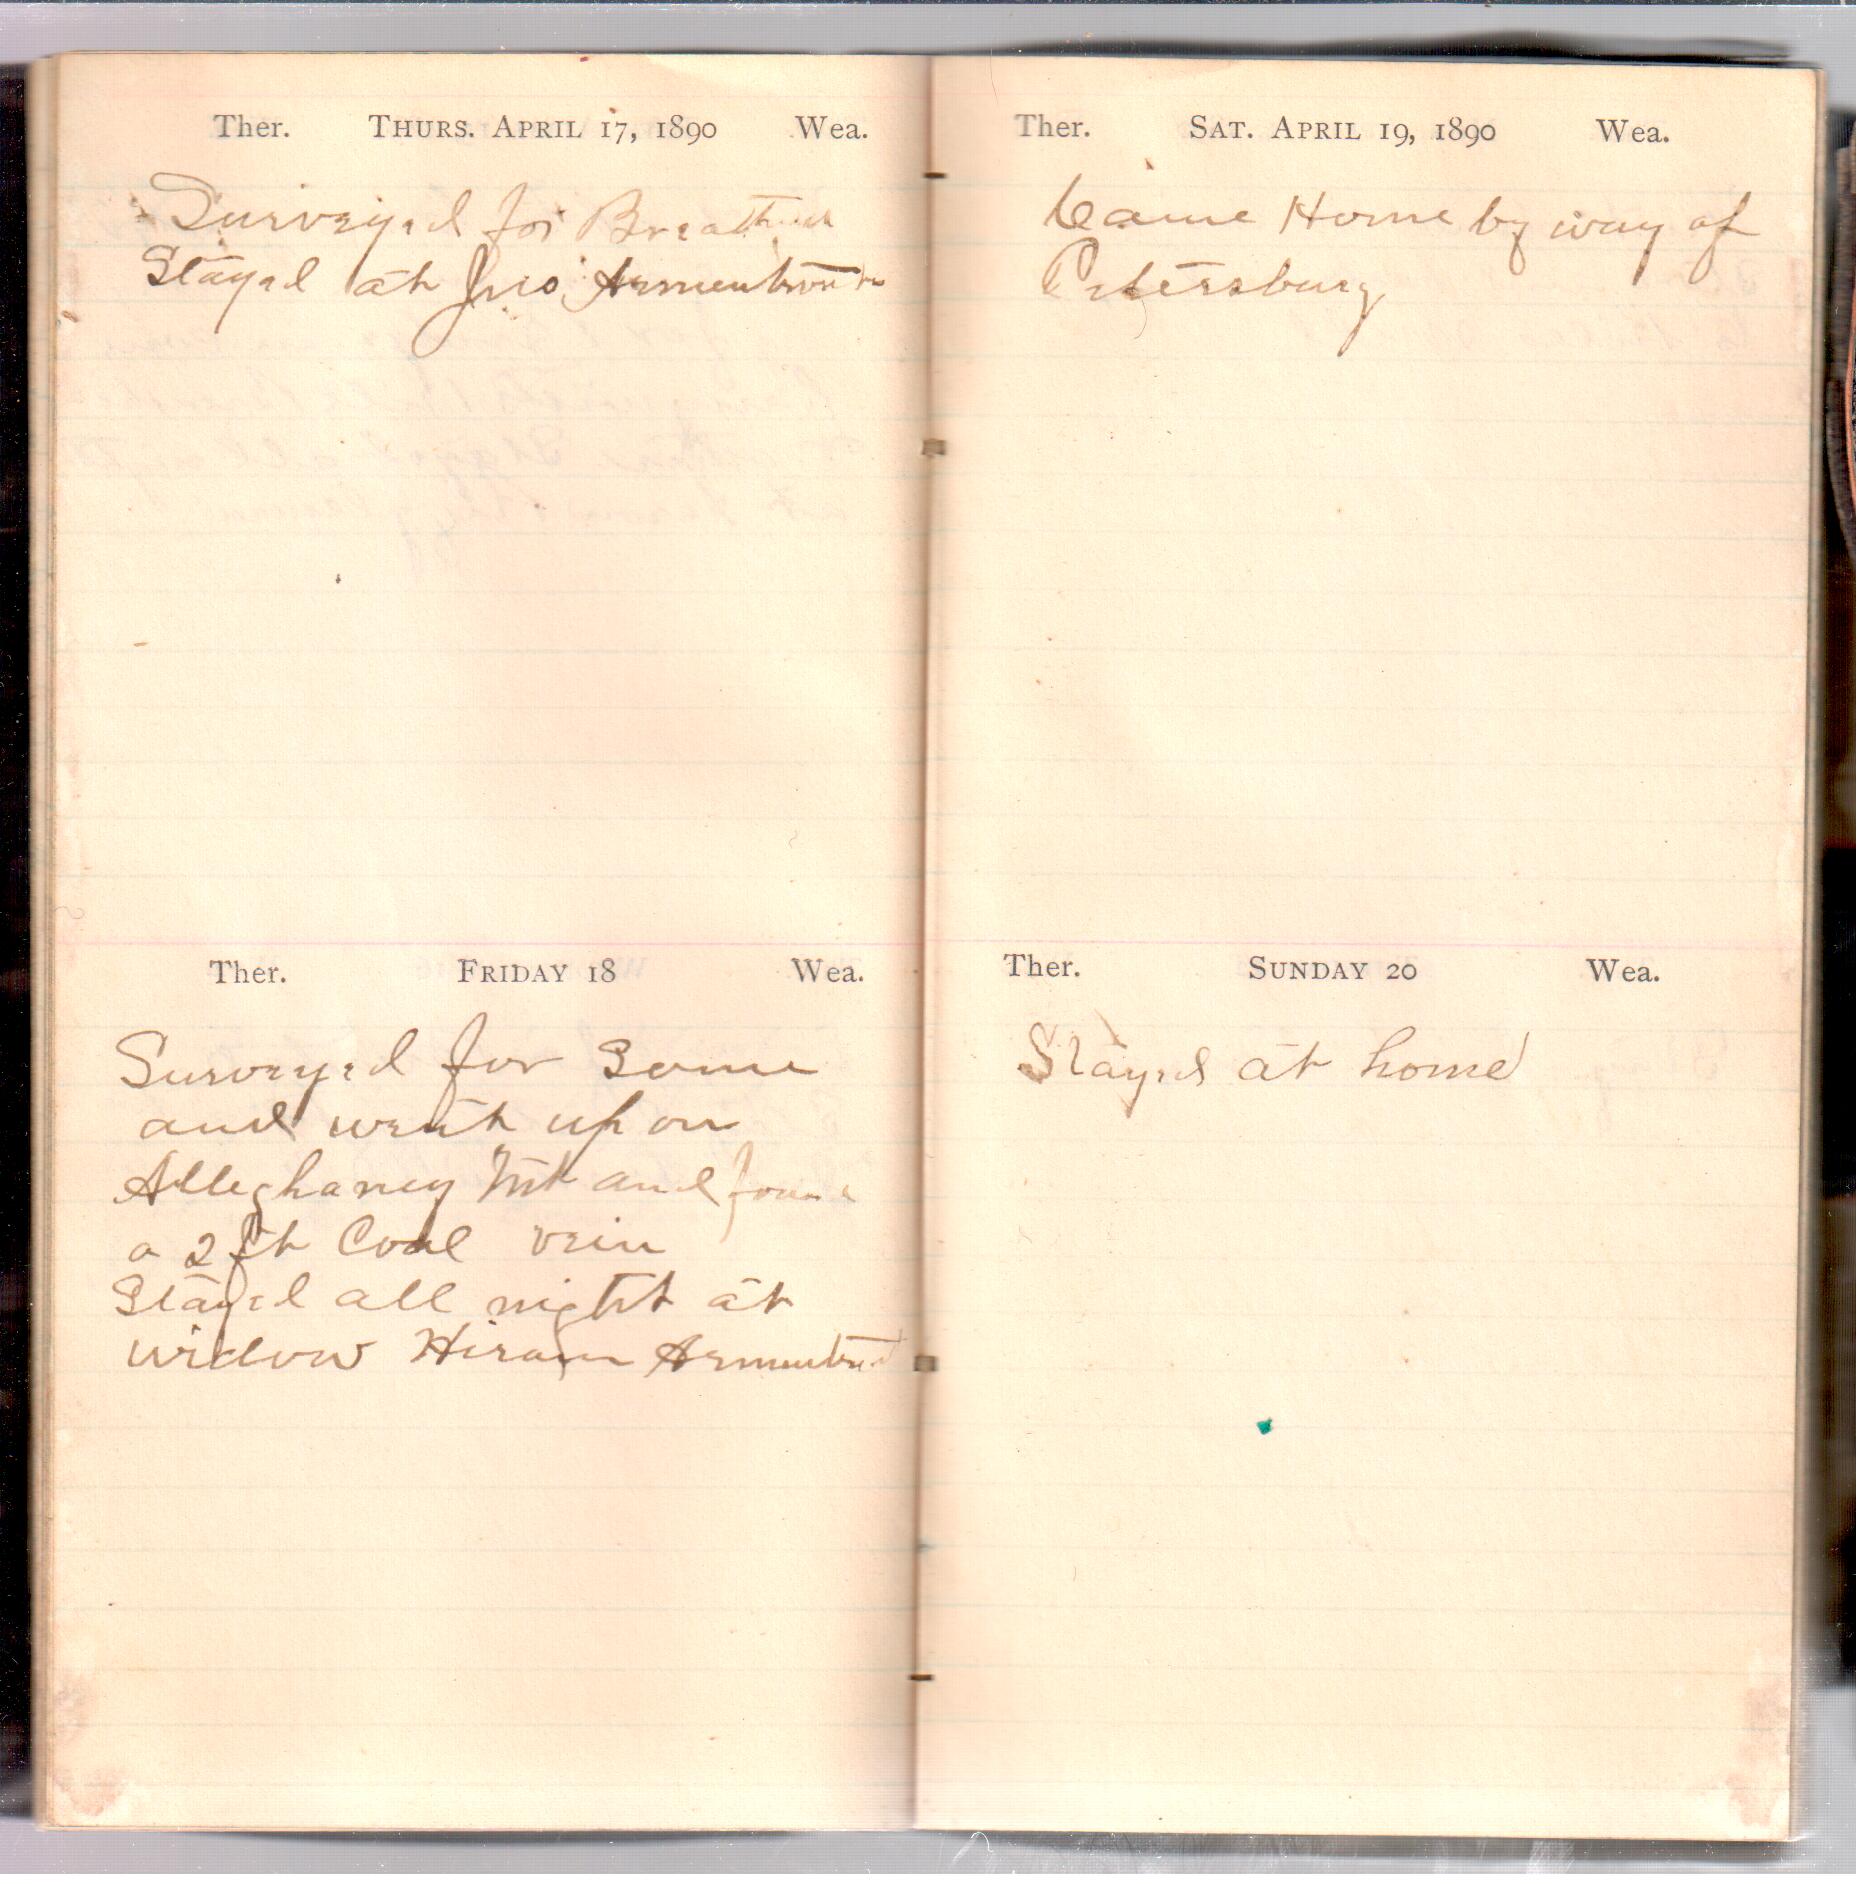 Ther. THURS. APRIL 17, 1890 Wea.
Surveyed for
Stayed at Jno Armentrout
Ther. FRIDAY 18 Wea.
Surveyed for Same
and went up on
Alleghaney Mt and found
a 2 ft Coal vein
Stayed all night at
widow Hiram Armentrout
Ther. SAT. APRIL 19, 1890 Wea.
Came Home by way of
Petersburg
Ther. SUNDAY 20 Wea.
Stayed at home